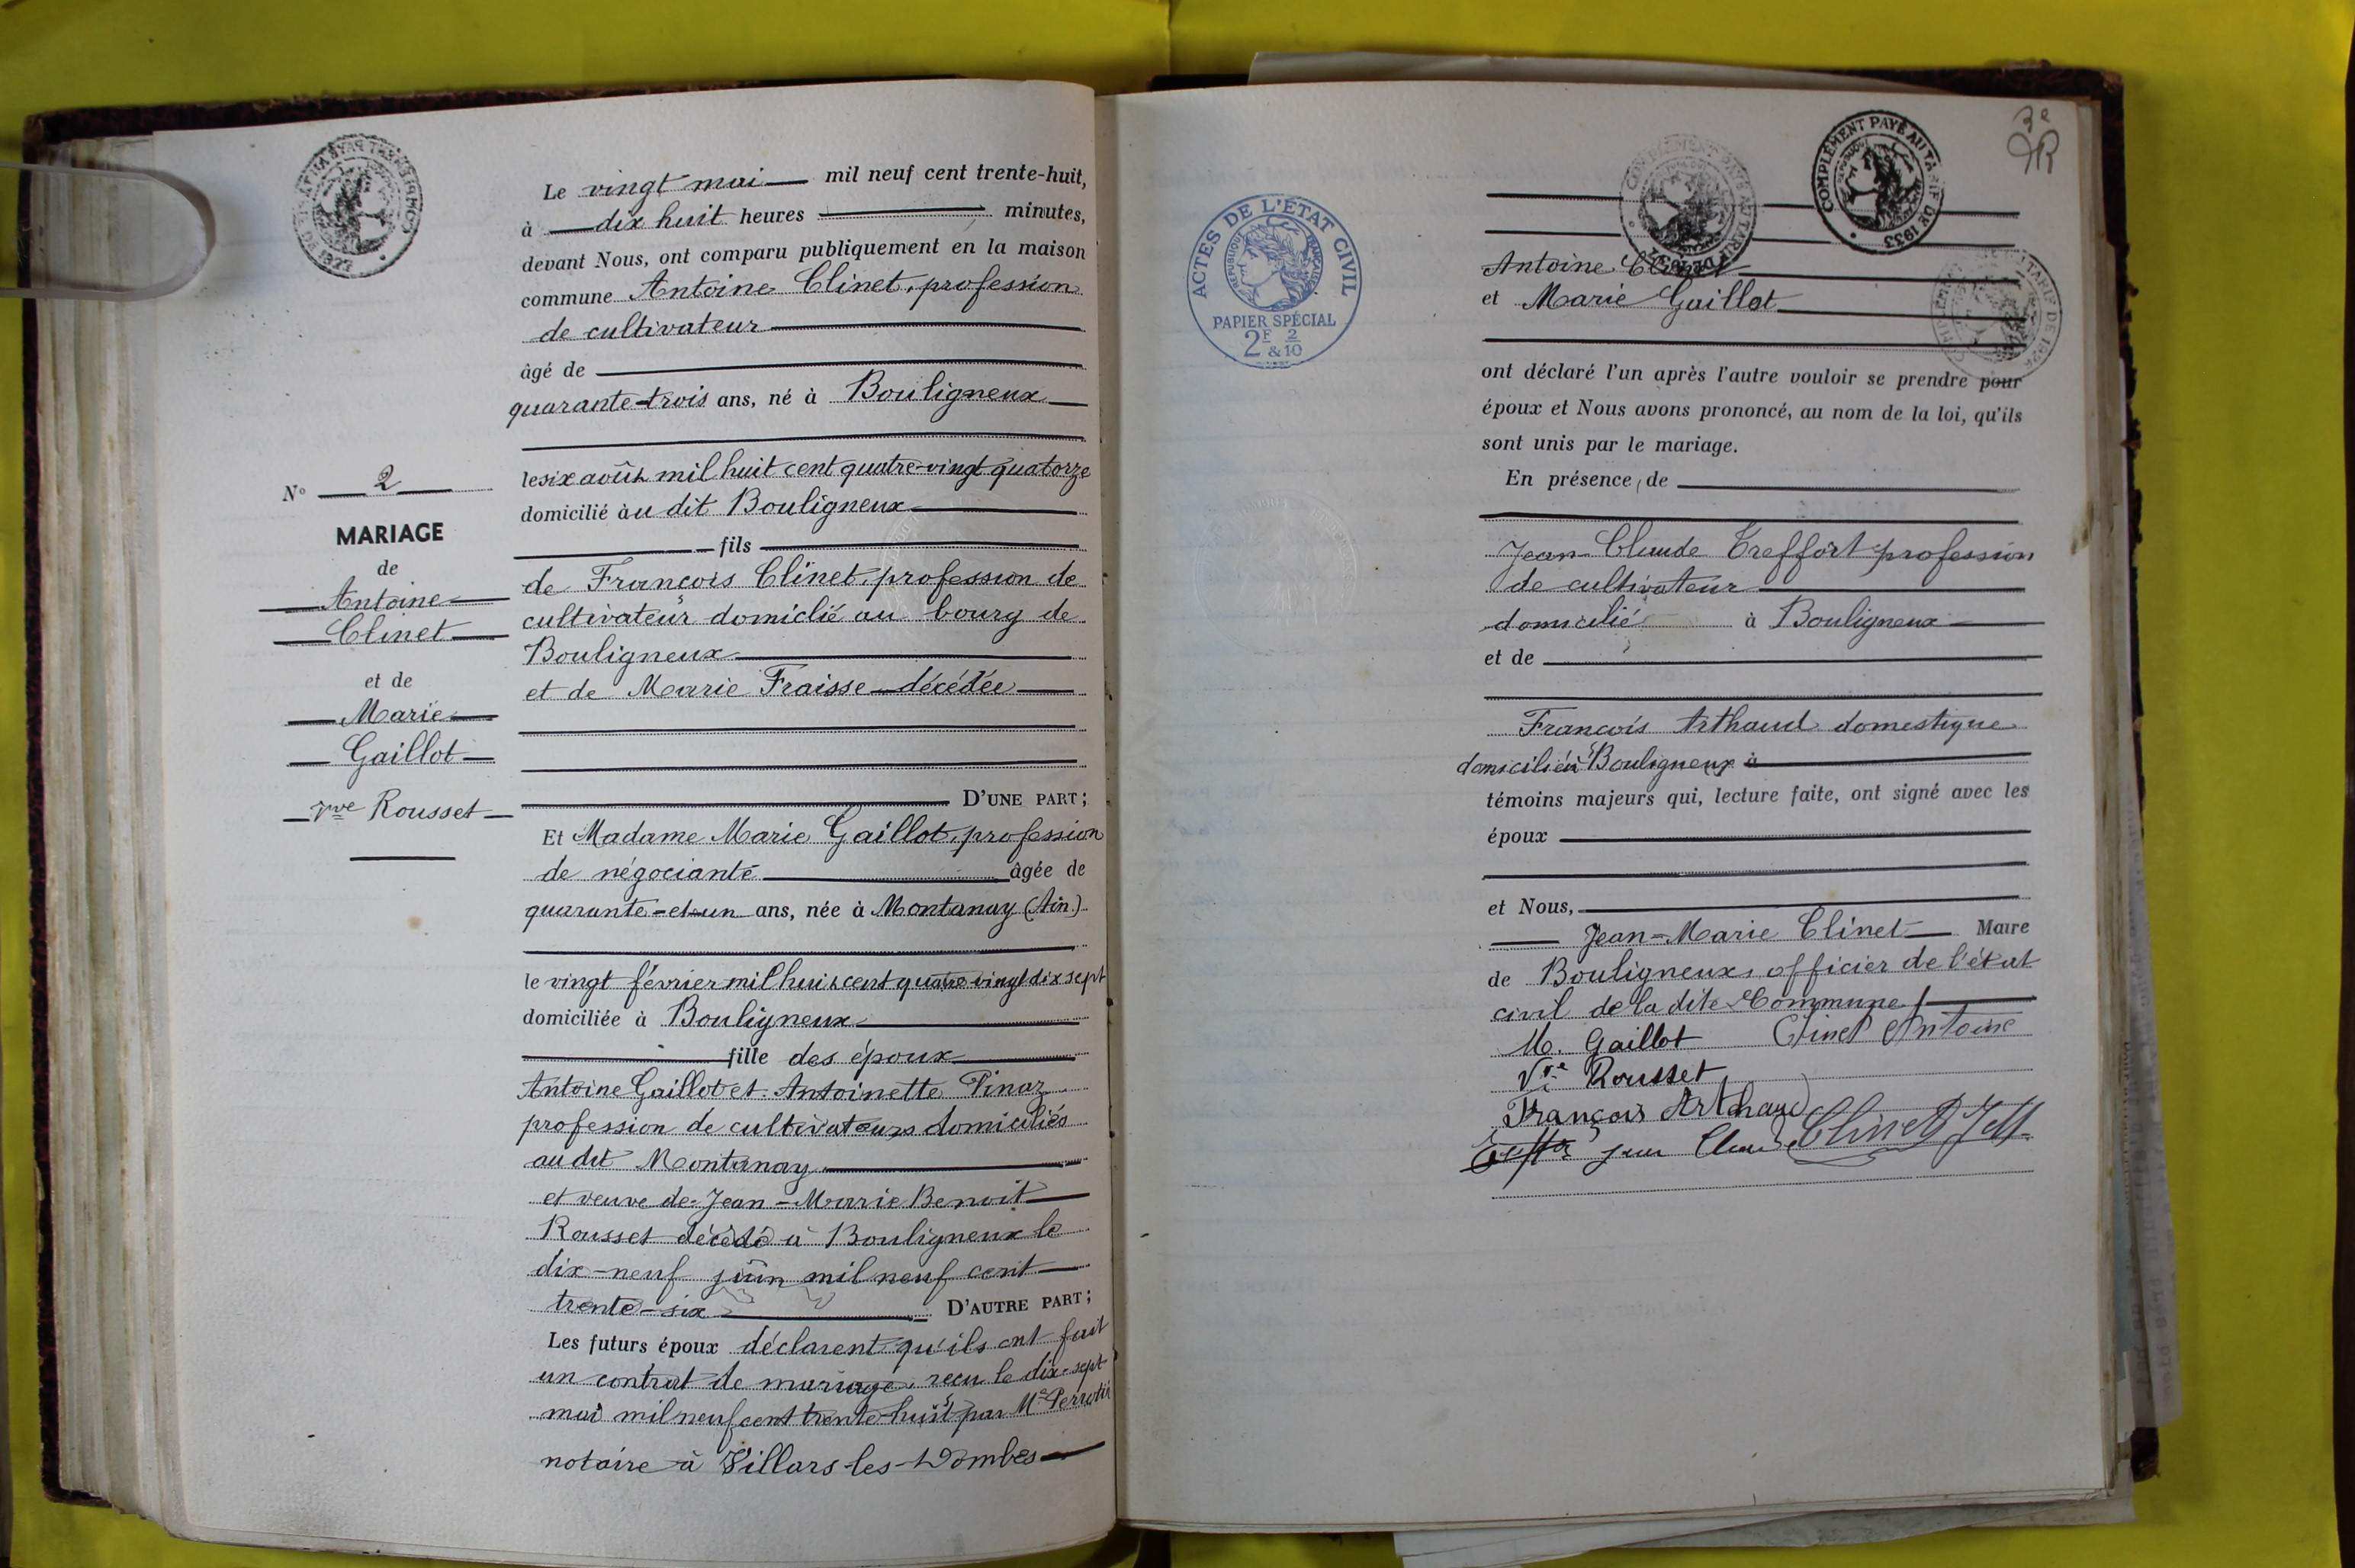 N° 2
MARIAGE
de
Antoine
Clinet
et de
Marie
Gaillot
Vve Rousset
Le vingt mai mil neuf cent trente-huit,
à dix huit heures minutes,
devant Nous, ont comparu publiquement en la maison
commune Antoine Clinet, profession
de cultivateur
âgé de
quarante-trois ans, né à Bouligneux
le six août mil huit cent quatre-vingt quatorze
domicilié àu dit Bouligneux
fils
de François Clinet, profession de
cultivateur domiclié au bourg de
Bouligneux
et de Marie Fraisse décédée
D'UNE PART;
Et Madame Marie Gaillot, profession
de négociante âgée de
quarante-et-un ans, née à Montanay (Ain)
le vingt février mil huit cent quatre vingt dix sept
domiciliée à Bouligneux
fille des époux
Antoine Gaillot et Antoinette Pinaz
profession de cultivateurs domiciliés
au dit Montanay
et veuve de Jean-Marie Benoit
Rousset décédé à Bouligneux le
dix-neuf juin mil neuf cent
trente-six D'AUTRE PART;
Les futurs époux déclarent qu'ils ont fait
un contrat de mariage, reçu le dix-sept
mai mil neuf cent trente-huit par Me Perrotin
notaire à Villars-les-Dombes
3e
ACTES DE L'ÉTAT CIVIL
RÉPUBLIQUE FRANÇAISE
PAPIER SPÉCIAL
2F & 2/10
COMPLÉMENT PAYÉ AU TARIF DE 1933
Antoine Clinet
et Marie Gaillot
ont déclaré l'un après l'autre vouloir se prendre pour
époux et Nous avons prononcé, au nom de la loi, qu'ils
sont unis par le mariage.
En présence de
Jean-Claude Treffort profession
de cultivateur
domicilié à Bouligneux
et de
François Arthaud domestique
domicilié à Bouligneux à
témoins majeurs qui, lecture faite, ont signé avec les
époux
et Nous,
Jean-Marie Clinet Maire
de Bouligneux, officier de l'état
civil de la dite Commune
M. Gaillot Clinet Antoine
Vve Rousset
François Arthaud
Jean Claude Clinet J M